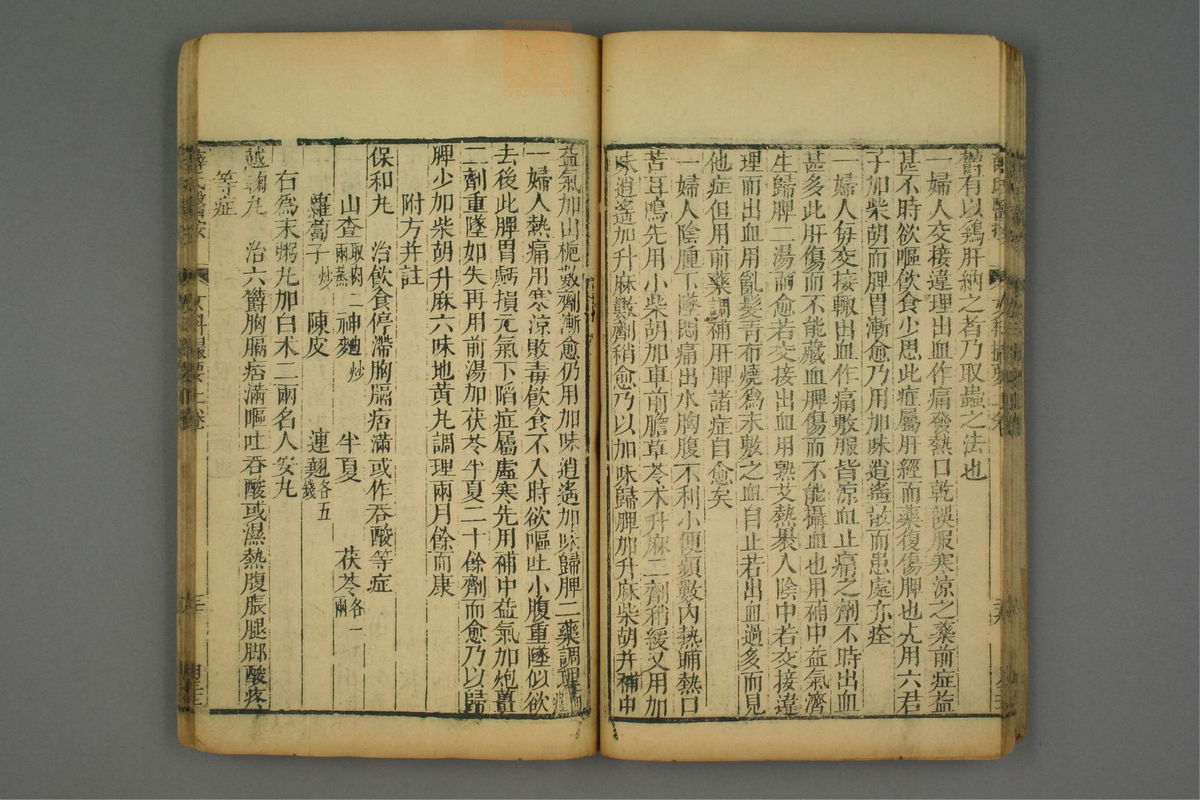 舊有以鷄肝納之者乃取蟲之法也
一婦人交接違理出血作痛發熱口乾誤服寒涼之藥前症益
甚不時欲嘔飲食少思此症屬肝經而藥復傷脾也先用六君
子加柴胡而脾胃漸愈乃用加味逍遙散而患處亦痊
一婦人每交接輒出血作痛敷服皆凉血止痛之劑不時出血
甚多此肝傷而不能藏血脾傷而不能攝血也用補中益氣濟
生歸脾二湯而愈若交接出血用熟艾熱裹入陰中若交接違
理而出血用亂髮青布燒為末敷之血自止若出血過多而見
他症但用前藥調補肝脾諸症自愈矣
一婦人陰腫下墜悶痛出水胸腹不利小便頻數內熱晡熱口
苦耳鳴先用小柴胡加車前膽草苓朮升麻二劑稍緩又用加
味逍遙加升麻數劑稍愈乃以加味歸脾加升麻柴胡并補中
益氣加山梔數劑漸愈仍用加味逍遙加味歸脾二藥調理
一婦人熱痛用寒涼敗毒飲食不入時欲嘔吐小腹重墜似欲
去後此脾胃虧損元氣下陷症屬虛寒先用補中益氣加炮薑
二劑重墜如失再用前湯加茯苓半夏二十餘劑而愈乃以歸
脾少加柴胡升麻六味地黃丸調理兩月餘而康
附方并註
保和丸 治飲食停滯胸膈痞滿或作吞酸等症
山查取肉二兩蒸 神麯炒 半夏 茯苓各一兩
蘿蔔子炒 陳皮 連翹各五錢
右為末粥丸加白朮二兩名人安丸
越鞠丸 治六鬱胸膈痞滿嘔吐吞酸或濕熱腹脹腿脚酸疼
等症
薛氏醫案 女科撮要上卷